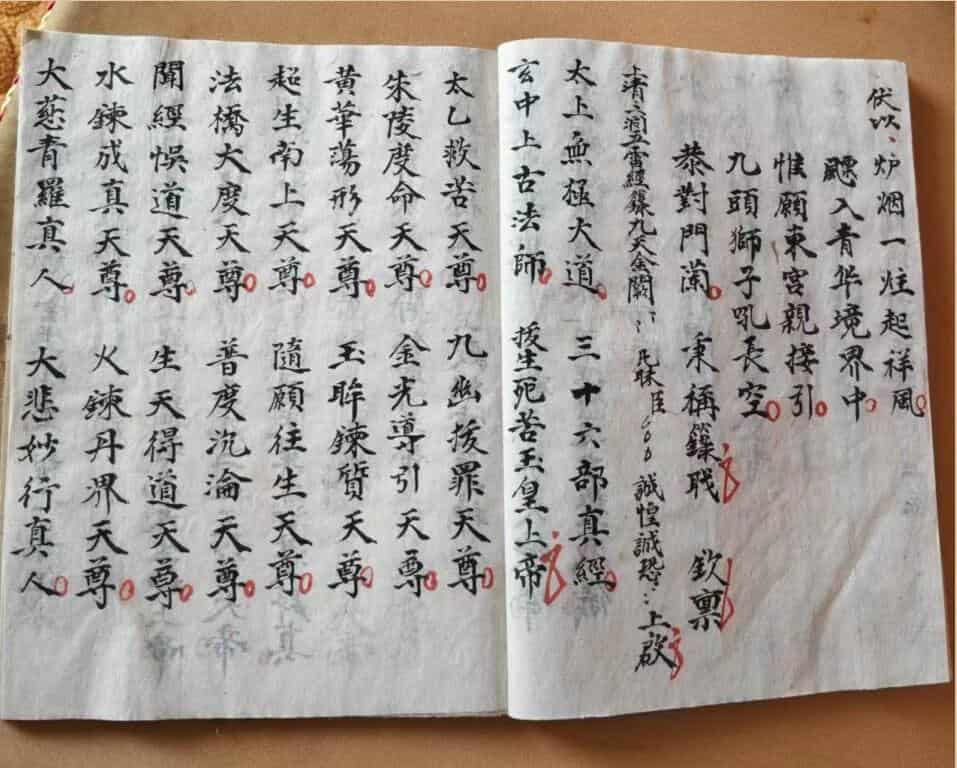 伏以、炉烟一炷起祥風
飄入青华境界中
惟願東宮親接引
九頭獅子吼長空
恭對門蘭 秉稱籙职 欽禀
上清三洞五雷經籙九天金闕 氏昧臣 誠惶誠恐 上啟
太上無極大道 三十六部真經
玄中上古法師 拔生死苦玉皇上帝
太乙救苦天尊 九幽拔罪天尊
朱陵度命天尊 金光導引天尊
黃華蕩形天尊 玉眸鍊質天尊
超生南上天尊 隨願往生天尊
法橋大度天尊 普度沉淪天尊
聞經悞道天尊 生天得道天尊
水鍊成真天尊 火鍊丹界天尊
大慈青羅真人 大悲妙行真人